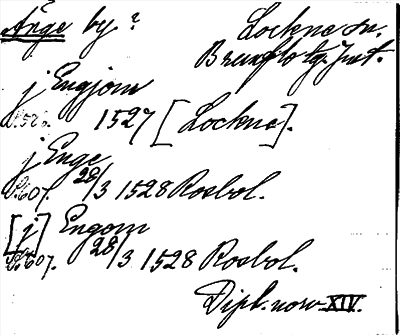 Änge by? Lockne sn.
Brunflo tg. Jmt.
j Engjom
1527 [Lockne].
j Enge
S. 607. 28/3 1528 Rosbol.
[j] Engom
S. 607. 28/3 1528 Rosbol.
Dipl. norv. XIV.